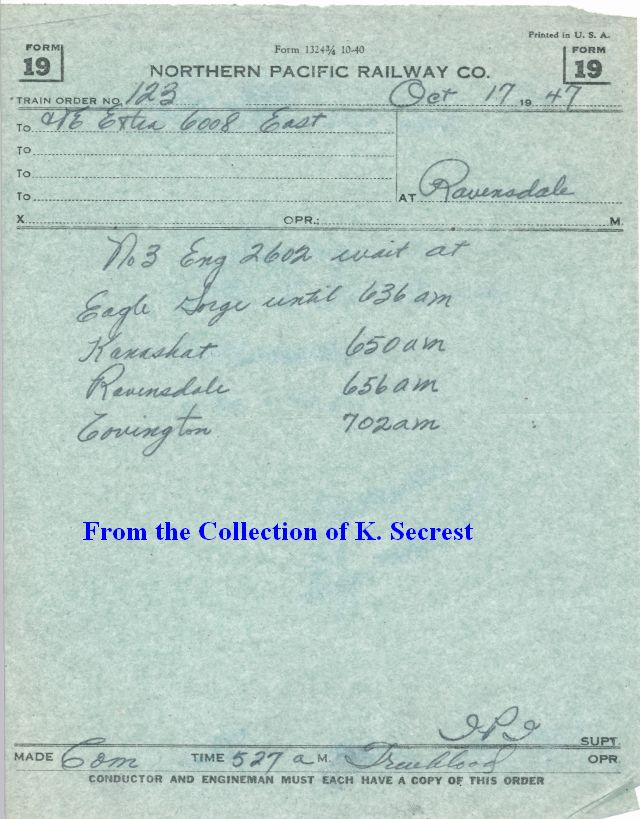 Printed in U. S. A.
FORM 19
Form 1324¾ 10-40
FORM 19
NORTHERN PACIFIC RAILWAY CO.
TRAIN ORDER NO. 123 Oct 17 1947
To C&E Extra 6008 East
To
To
To
AT Ravensdale
X OPR.: M
No 3 Eng 2602 wait at
Eagle Gorge until 636 am
Kanashat 650 am
Ravensdale 656 am
Covington 702 am
From the Collection of K. Secrest
SUPT.
MADE Com TIME 527 a M. Trueblood OPR.
CONDUCTOR AND ENGINEMAN MUST EACH HAVE A COPY OF THIS ORDER